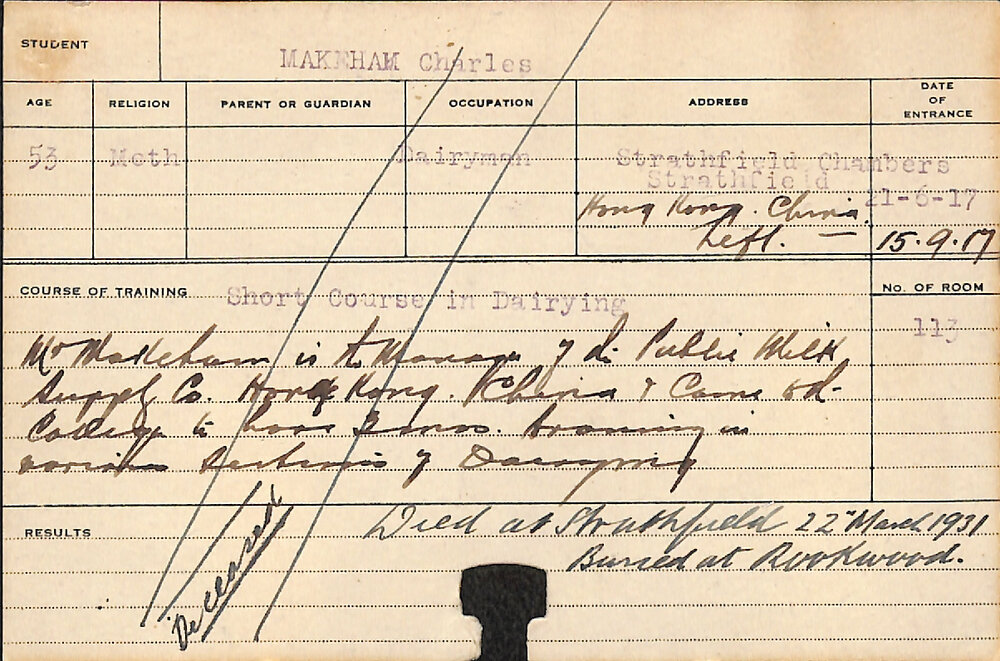 STUDENT
MAKEHAM Charles
AGE RELIGION PARENT OR GUARDIAN OCCUPATION ADDRESS DATE OF ENTRANCE
53 Meth Dairyman Strathfield Chambers
Strathfield
21-6-17
Hong Kong. China.
Left. — 15.9.17
COURSE OF TRAINING Short Course in Dairying No. OF ROOM
113
Mr Makeham is the Manager of the Public Milk
Supply Co. Hong Kong. China & Came to
College to have 3 mos. training in
various Sections of Dairying
RESULTS
Deceased
Died at Strathfield 22nd March 1931
Buried at Rookwood.